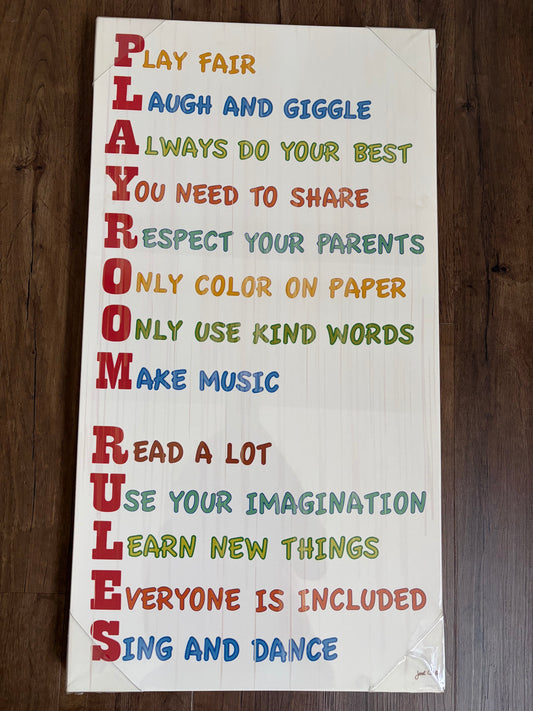 PLAY FAIR
LAUGH AND GIGGLE
ALWAYS DO YOUR BEST
YOU NEED TO SHARE
RESPECT YOUR PARENTS
ONLY COLOR ON PAPER
ONLY USE KIND WORDS
MAKE MUSIC
READ A LOT
USE YOUR IMAGINATION
LEARN NEW THINGS
EVERYONE IS INCLUDED
SING AND DANCE